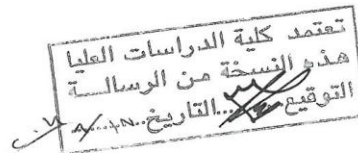 تعتمد كلية الدراسات العليا
هذه النسخة من الرسالــــة
التوقيع.......التاريخ